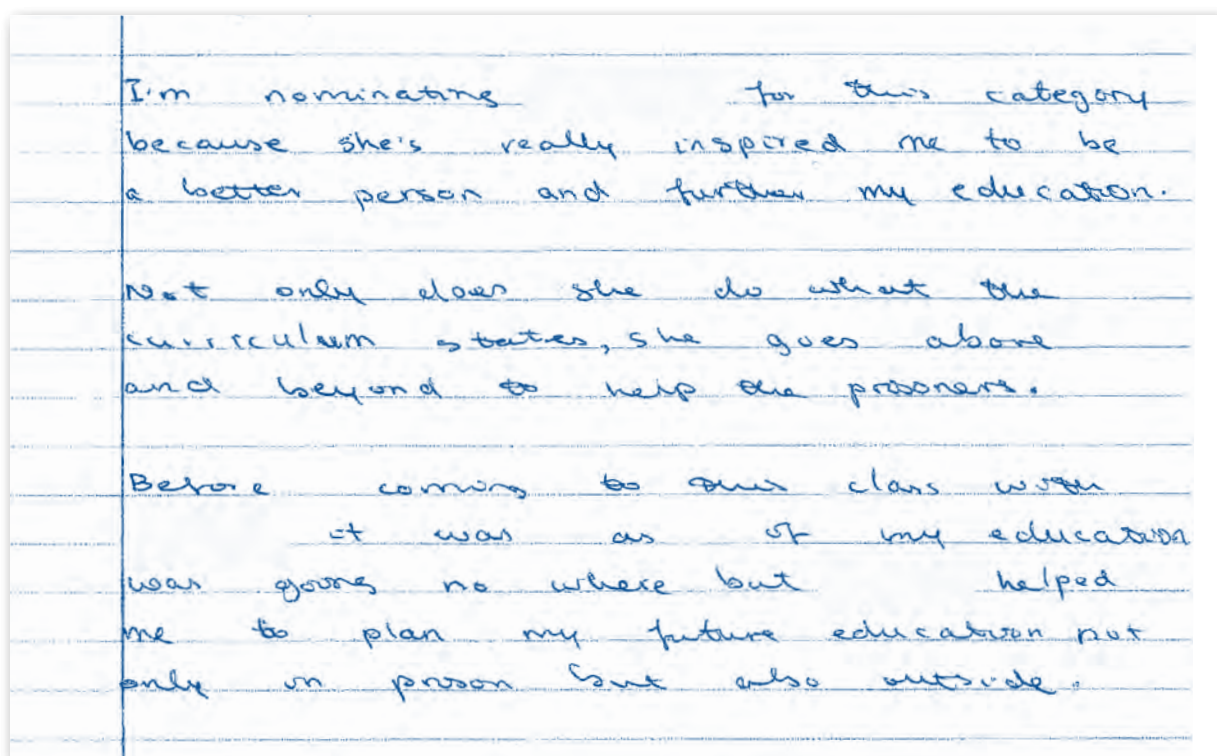 I'm nominating for this category
because she's really inspired me to be
a better person and further my education.
Not only does she do what the
curriculum states, she goes above
and beyond to help the prisoners.
Before coming to this class with
it was as if my education
was going no where but helped
me to plan my future education not
only in prison but also outside.